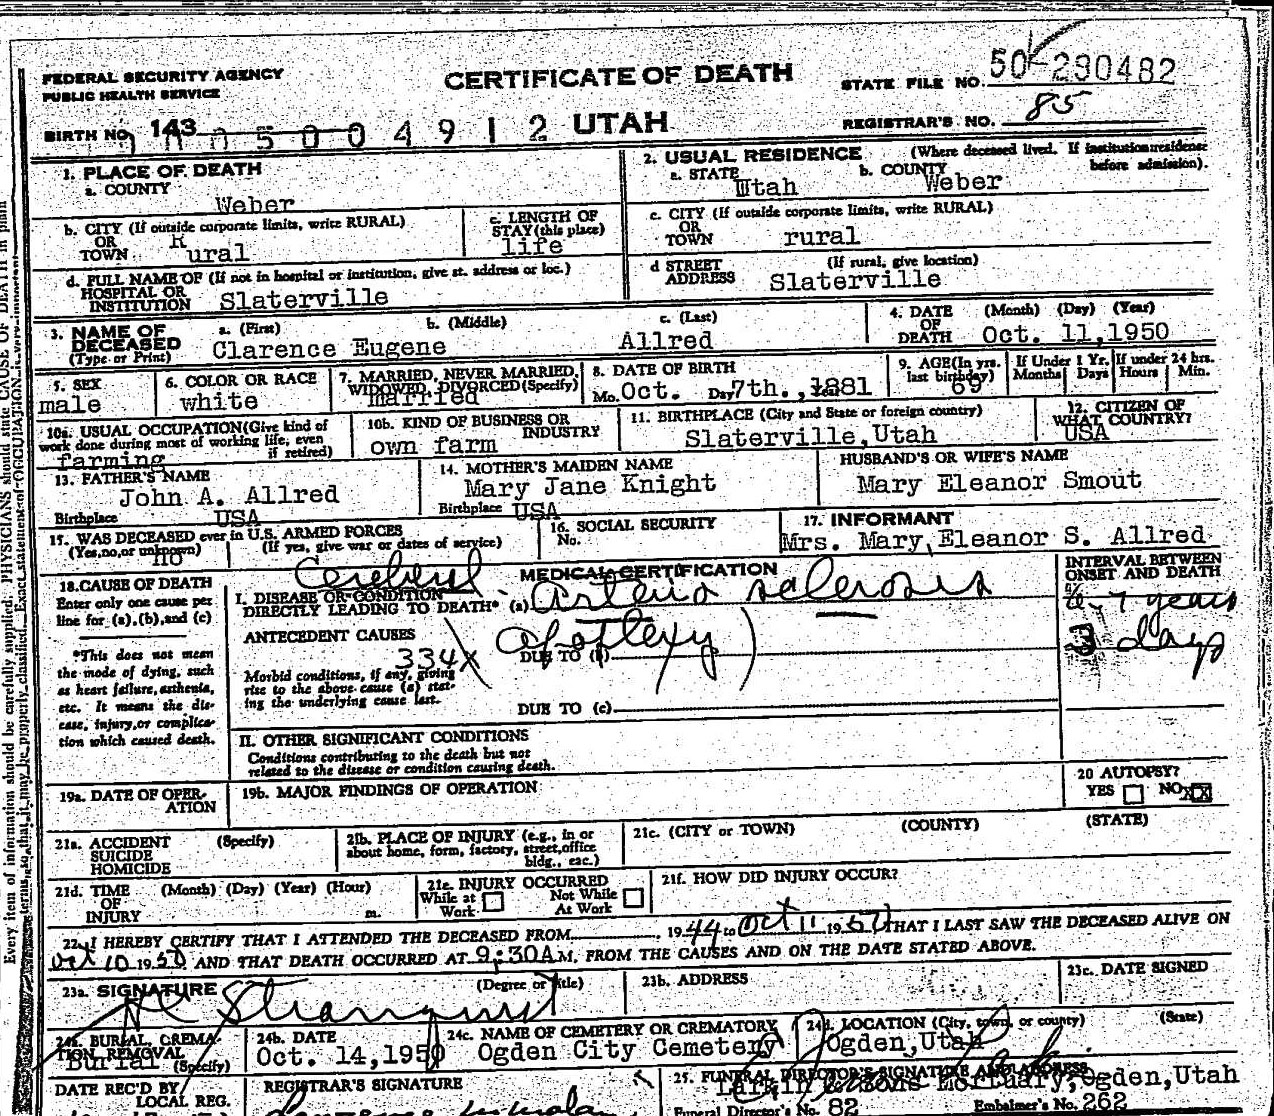 FEDERAL SECURITY AGENCY
PUBLIC HEALTH SERVICE
CERTIFICATE OF DEATH
STATE FILE NO. 50-290482
BIRTH NO. 143 005004912 UTAH
REGISTRAR'S NO. 85
1. PLACE OF DEATH
a. COUNTY
Weber
2. USUAL RESIDENCE (Where deceased lived. If institution: residense before admission).
a. STATE Utah b. COUNTY Weber
b. CITY (If outside corporate limits, write RURAL)
OR
TOWN Rural
c. LENGTH OF
STAY (this place)
life
c. CITY (If outside corporate limits, write RURAL)
OR
TOWN rural
d. FULL NAME OF (If not in hospital or institution, give st. address or loc.)
HOSPITAL OR
INSTITUTION Slaterville
d STREET (If rural, give location)
ADDRESS Slaterville
3. NAME OF
DECEASED
(Type or Print)
a. (First) b. (Middle) c. (Last)
Clarence Eugene Allred
4. DATE (Month) (Day) (Year)
OF
DEATH Oct. 11,1950
5. SEX
male
6. COLOR OR RACE
white
7. MARRIED, NEVER MARRIED,
WIDOWED, DIVORCED (Specify)
married
8. DATE OF BIRTH
Mo. Oct. Day 7th., Year 1881
9. AGE (In yrs.
last birthday)
69
If Under 1 Yr.
Months Days
If under 24 hrs.
Hours Min.
10a. USUAL OCCUPATION (Give kind of
work done during most of working life, even
if retired)
farming
10b. KIND OF BUSINESS OR
INDUSTRY
own farm
11. BIRTHPLACE (City and State or foreign country)
Slaterville,Utah
12. CITIZEN OF
WHAT COUNTRY?
USA
13. FATHER'S NAME
John A. Allred
Birthplace USA
14. MOTHER'S MAIDEN NAME
Mary Jane Knight
Birthplace USA
HUSBAND'S OR WIFE'S NAME
Mary Eleanor Smout
15. WAS DECEASED ever in U.S. ARMED FORCES
(Yes, no, or unknown) (If yes, give war or dates of service)
no
16. SOCIAL SECURITY
No.
17. INFORMANT
Mrs. Mary Eleanor S. Allred
18. CAUSE OF DEATH
Enter only one cause per
line for (a), (b), and (c)
*This does not mean
the mode of dying, such
as heart failure, asthenia,
etc. It means the dis-
ease, injury, or complica-
tion which caused death.
MEDICAL CERTIFICATION
I. DISEASE OR CONDITION
DIRECTLY LEADING TO DEATH* (a) Cerebral arterio sclerosis
ANTECEDENT CAUSES
(Apoplexy)
334X
DUE TO (b)
Morbid conditions, if any, giving
rise to the above cause (a) stat-
ing the underlying cause last.
DUE TO (c)
INTERVAL BETWEEN
ONSET AND DEATH
7 years
3 days
II. OTHER SIGNIFICANT CONDITIONS
Conditions contributing to the death but not
related to the disease or condition causing death.
19a. DATE OF OPER-
ATION
19b. MAJOR FINDINGS OF OPERATION
20 AUTOPSY?
YES NO XX
21a. ACCIDENT (Specify)
SUICIDE
HOMICIDE
21b. PLACE OF INJURY (e.g., in or
about home, form, factory, street, office
bldg., eac.)
21c. (CITY or TOWN) (COUNTY) (STATE)
21d. TIME (Month) (Day) (Year) (Hour)
OF
INJURY m.
21e. INJURY OCCURRED
While at Work Not While At Work
21f. HOW DID INJURY OCCUR?
22. I HEREBY CERTIFY THAT I ATTENDED THE DECEASED FROM 1944 to Oct 11 1950 THAT I LAST SAW THE DECEASED ALIVE ON
Oct 10 1950 AND THAT DEATH OCCURRED AT 9:30A M. FROM THE CAUSES AND ON THE DATE STATED ABOVE.
23a. SIGNATURE (Degree or Title)
23b. ADDRESS
23c. DATE SIGNED
24a. BURIAL, CREMA-
TION, REMOVAL
(Specify)
Burial
24b. DATE
Oct. 14,1950
24c. NAME OF CEMETERY OR CREMATORY
Ogden City Cemetery
24d. LOCATION (City, town, or county) (State)
Ogden,Utah
DATE REC'D BY
LOCAL REG.
REGISTRAR'S SIGNATURE
25. FUNERAL DIRECTOR'S SIGNATURE AND ADDRESS
Larkin Sons Mortuary,Ogden,Utah
Funeral Director's No. 82 Embalmer's No. 262